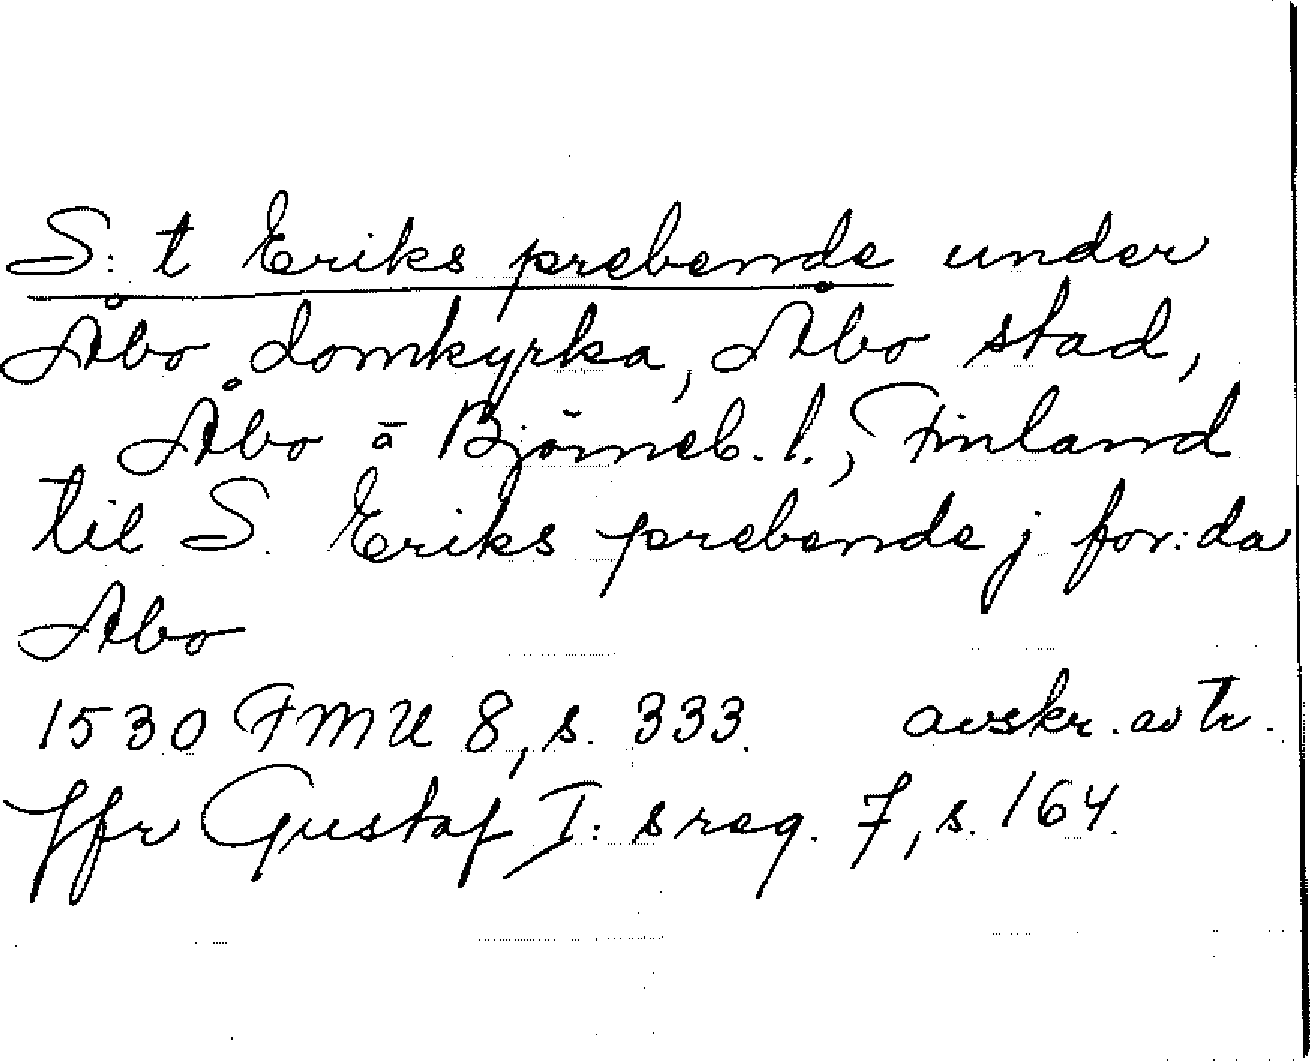 S:t Eriks prebende under
Åbo domkyrka, Åbo stad,
Åbo o Björneb. l., Finland
til S. Eriks prebende j for:da
Abo
1530 FMU 8, s. 333. avskr. av tr.
Jfr Gustaf I:s reg. 7, s. 164.